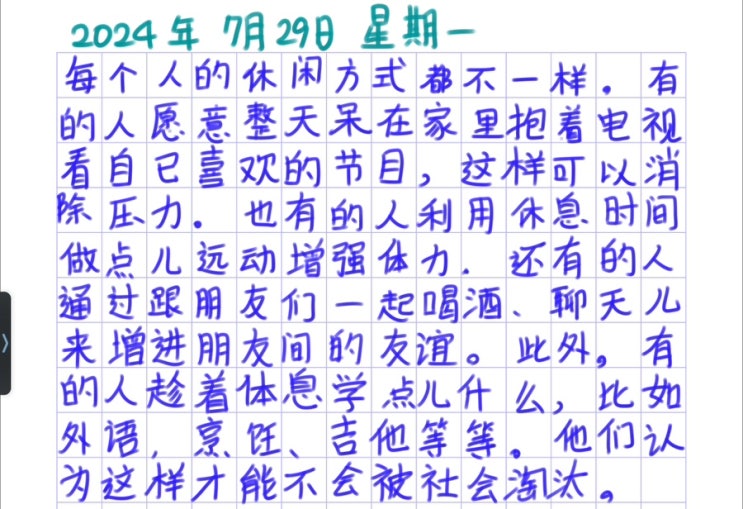 2024年 7月29日 星期一
每个人的休闲方式都不一样. 有
的人愿意整天呆在家里抱着电视
看自己喜欢的节目, 这样可以消
除压力. 也有的人利用休息时间
做点儿远动增强体力. 还有的人
通过跟朋友们一起喝酒、聊天儿
来增进朋友间的友谊。此外, 有
的人趁着体息学点儿什么, 比如
外语, 烹饪、吉他等等。他们认
为这样才能不会被社会淘汰。